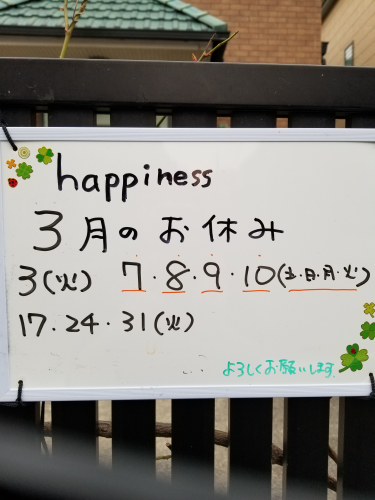 happiness
3月のお休み
3(火) 7・8・9・10(土・日・月・火)
17・24・31(火)
よろしくお願いします。